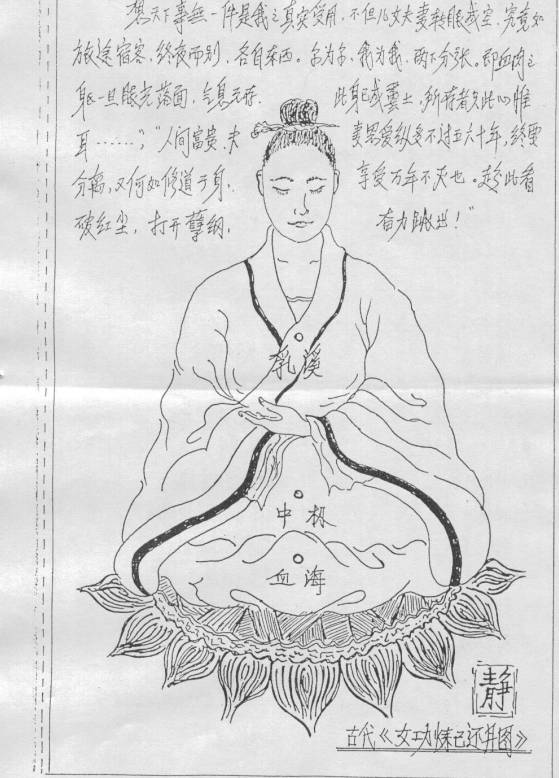 想天下事无一件是我之真实受用，不但儿女夫妻转眼成空，究竟如
旅途宿客，终夜而别，各自东西。尔为尔，我为我，两下分张。即血肉之
身，一旦眼光落面，气息无存 此身已成粪土，所存者只此心性
耳……"，"人间富贵，夫 妻恩爱纵多不过五六十年，终要
分离，又何如修道于身， 享受万年不灭也。趁此看
破红尘，打开孽纲， 奋力跳出！"
乳溪
中极
血海
静
古代《女功炼己还丹图》